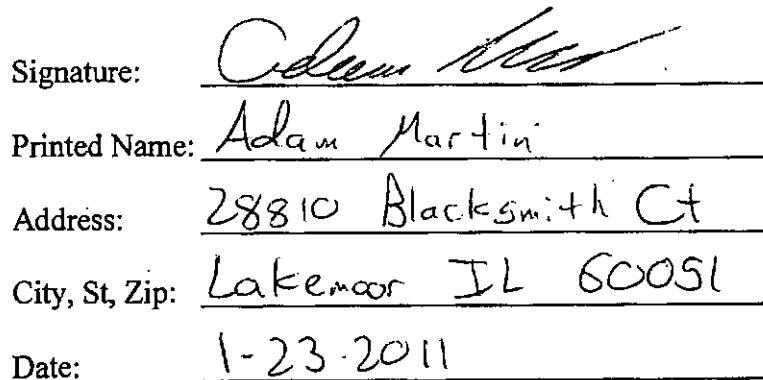 Signature: Adam
Printed Name: Adam Martin
Address: 28810 Blacksmith Ct
City, St, Zip: Lakemoor IL 60051
Date: 1-23-2011